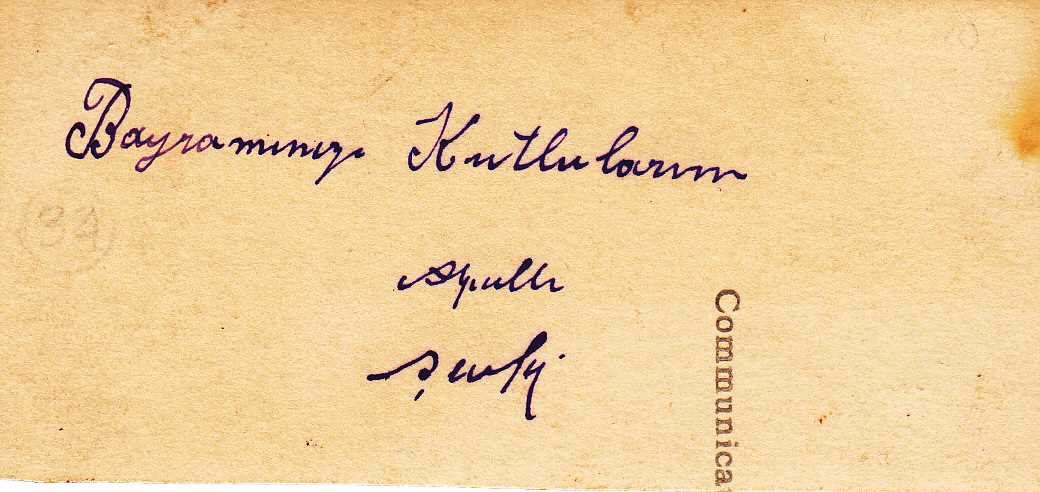 Bayramınızı Kutlularım
Şevki
(34)
Communica